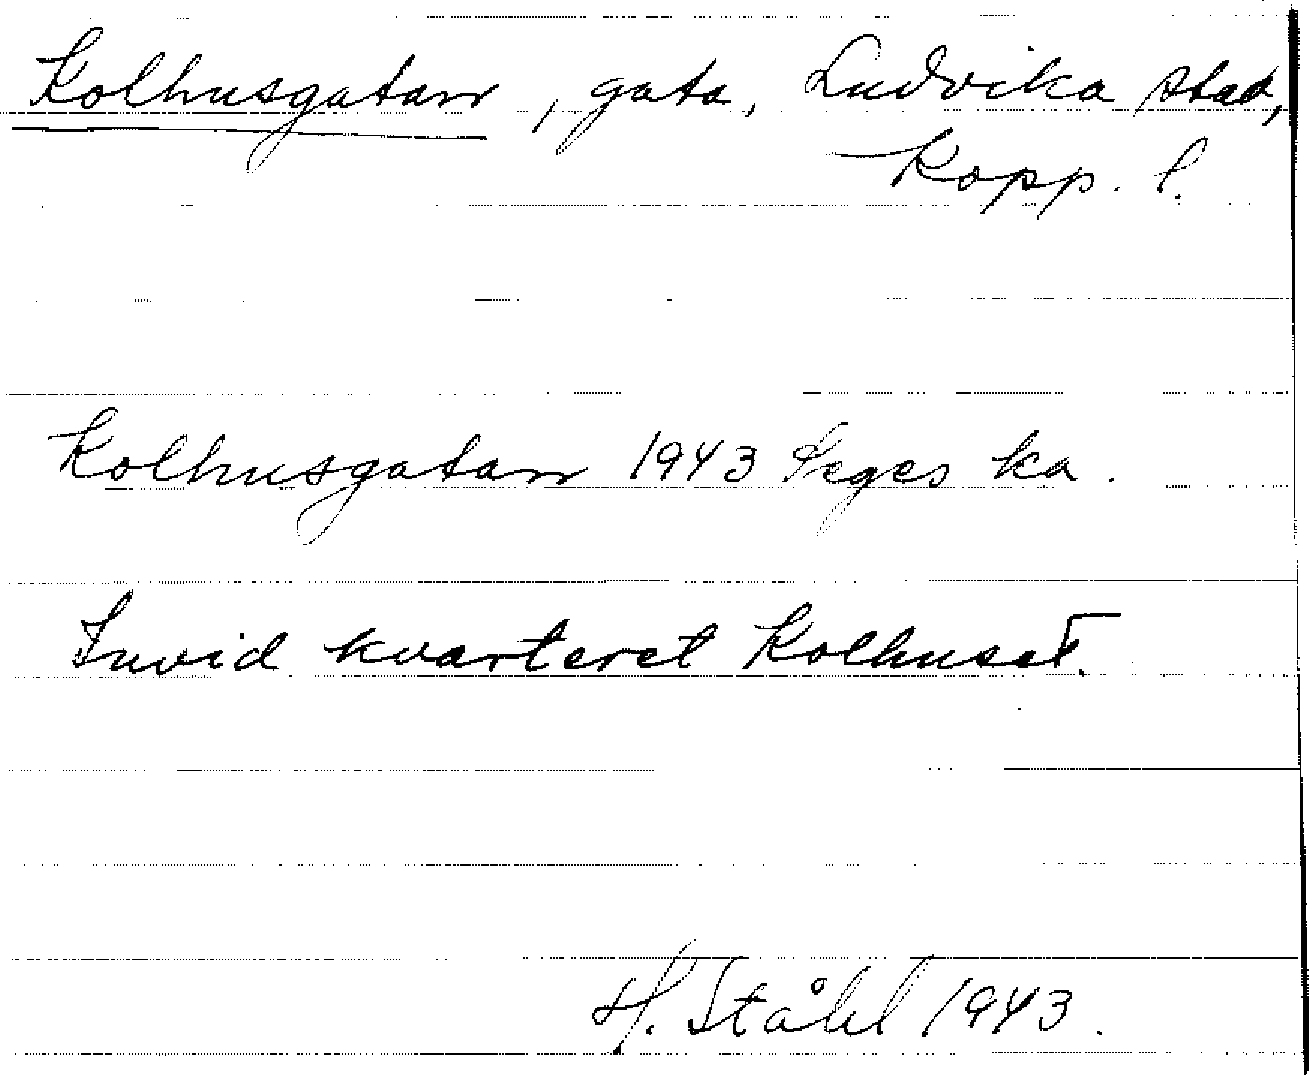 Kolhusgatan, gata, Ludvika stad,
Kopp. l.
Kolhusgatan 1943 Seges ka.
Invid kvarteret Kolhuset.
H. Ståhl 1943.